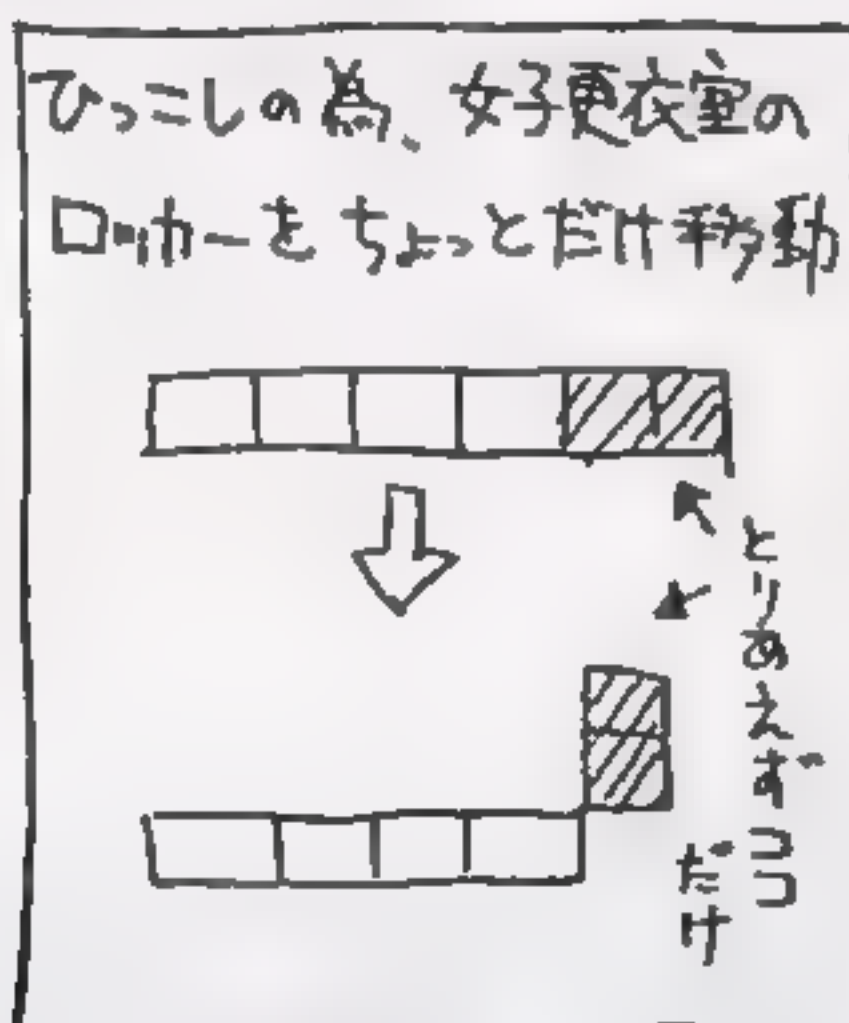 ひっこしの為、女子更衣室の
ロッカーをちょっとだけ移動
とりあえずココ
だけ